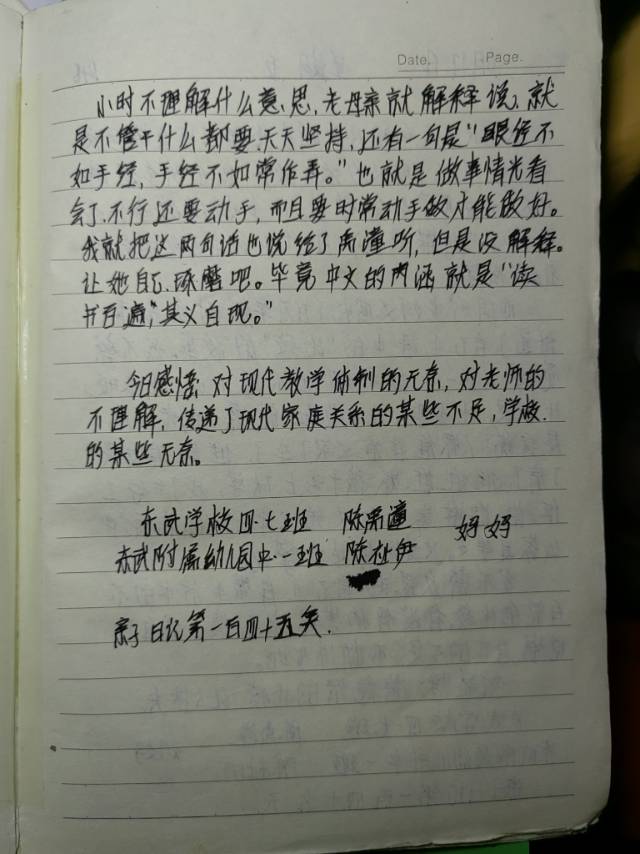 Date. Page.
小时不理解什么意思,老母亲就解释说,就
是不管干什么都要天天坚持,还有一句是“眼经不
如手经,手经不如常作弄。”也就是做事情光看
会了不行还要动手,而且要时常动手做才能做好。
我就把这两句话也说给了禹潼听,但是没解释。
让她自己琢磨吧。毕竟中文的内涵就是“读
书百遍,其义自现。”
今日感悟:对现代教学体制的无奈,对老师的
不理解,传递了现代家庭关系的某些不足,学校
的某些无奈。
东武学校四·七班 陈禹潼 妈妈
东武附属幼儿园中·一班 陈祉伊
亲子日记第一百四十五天.